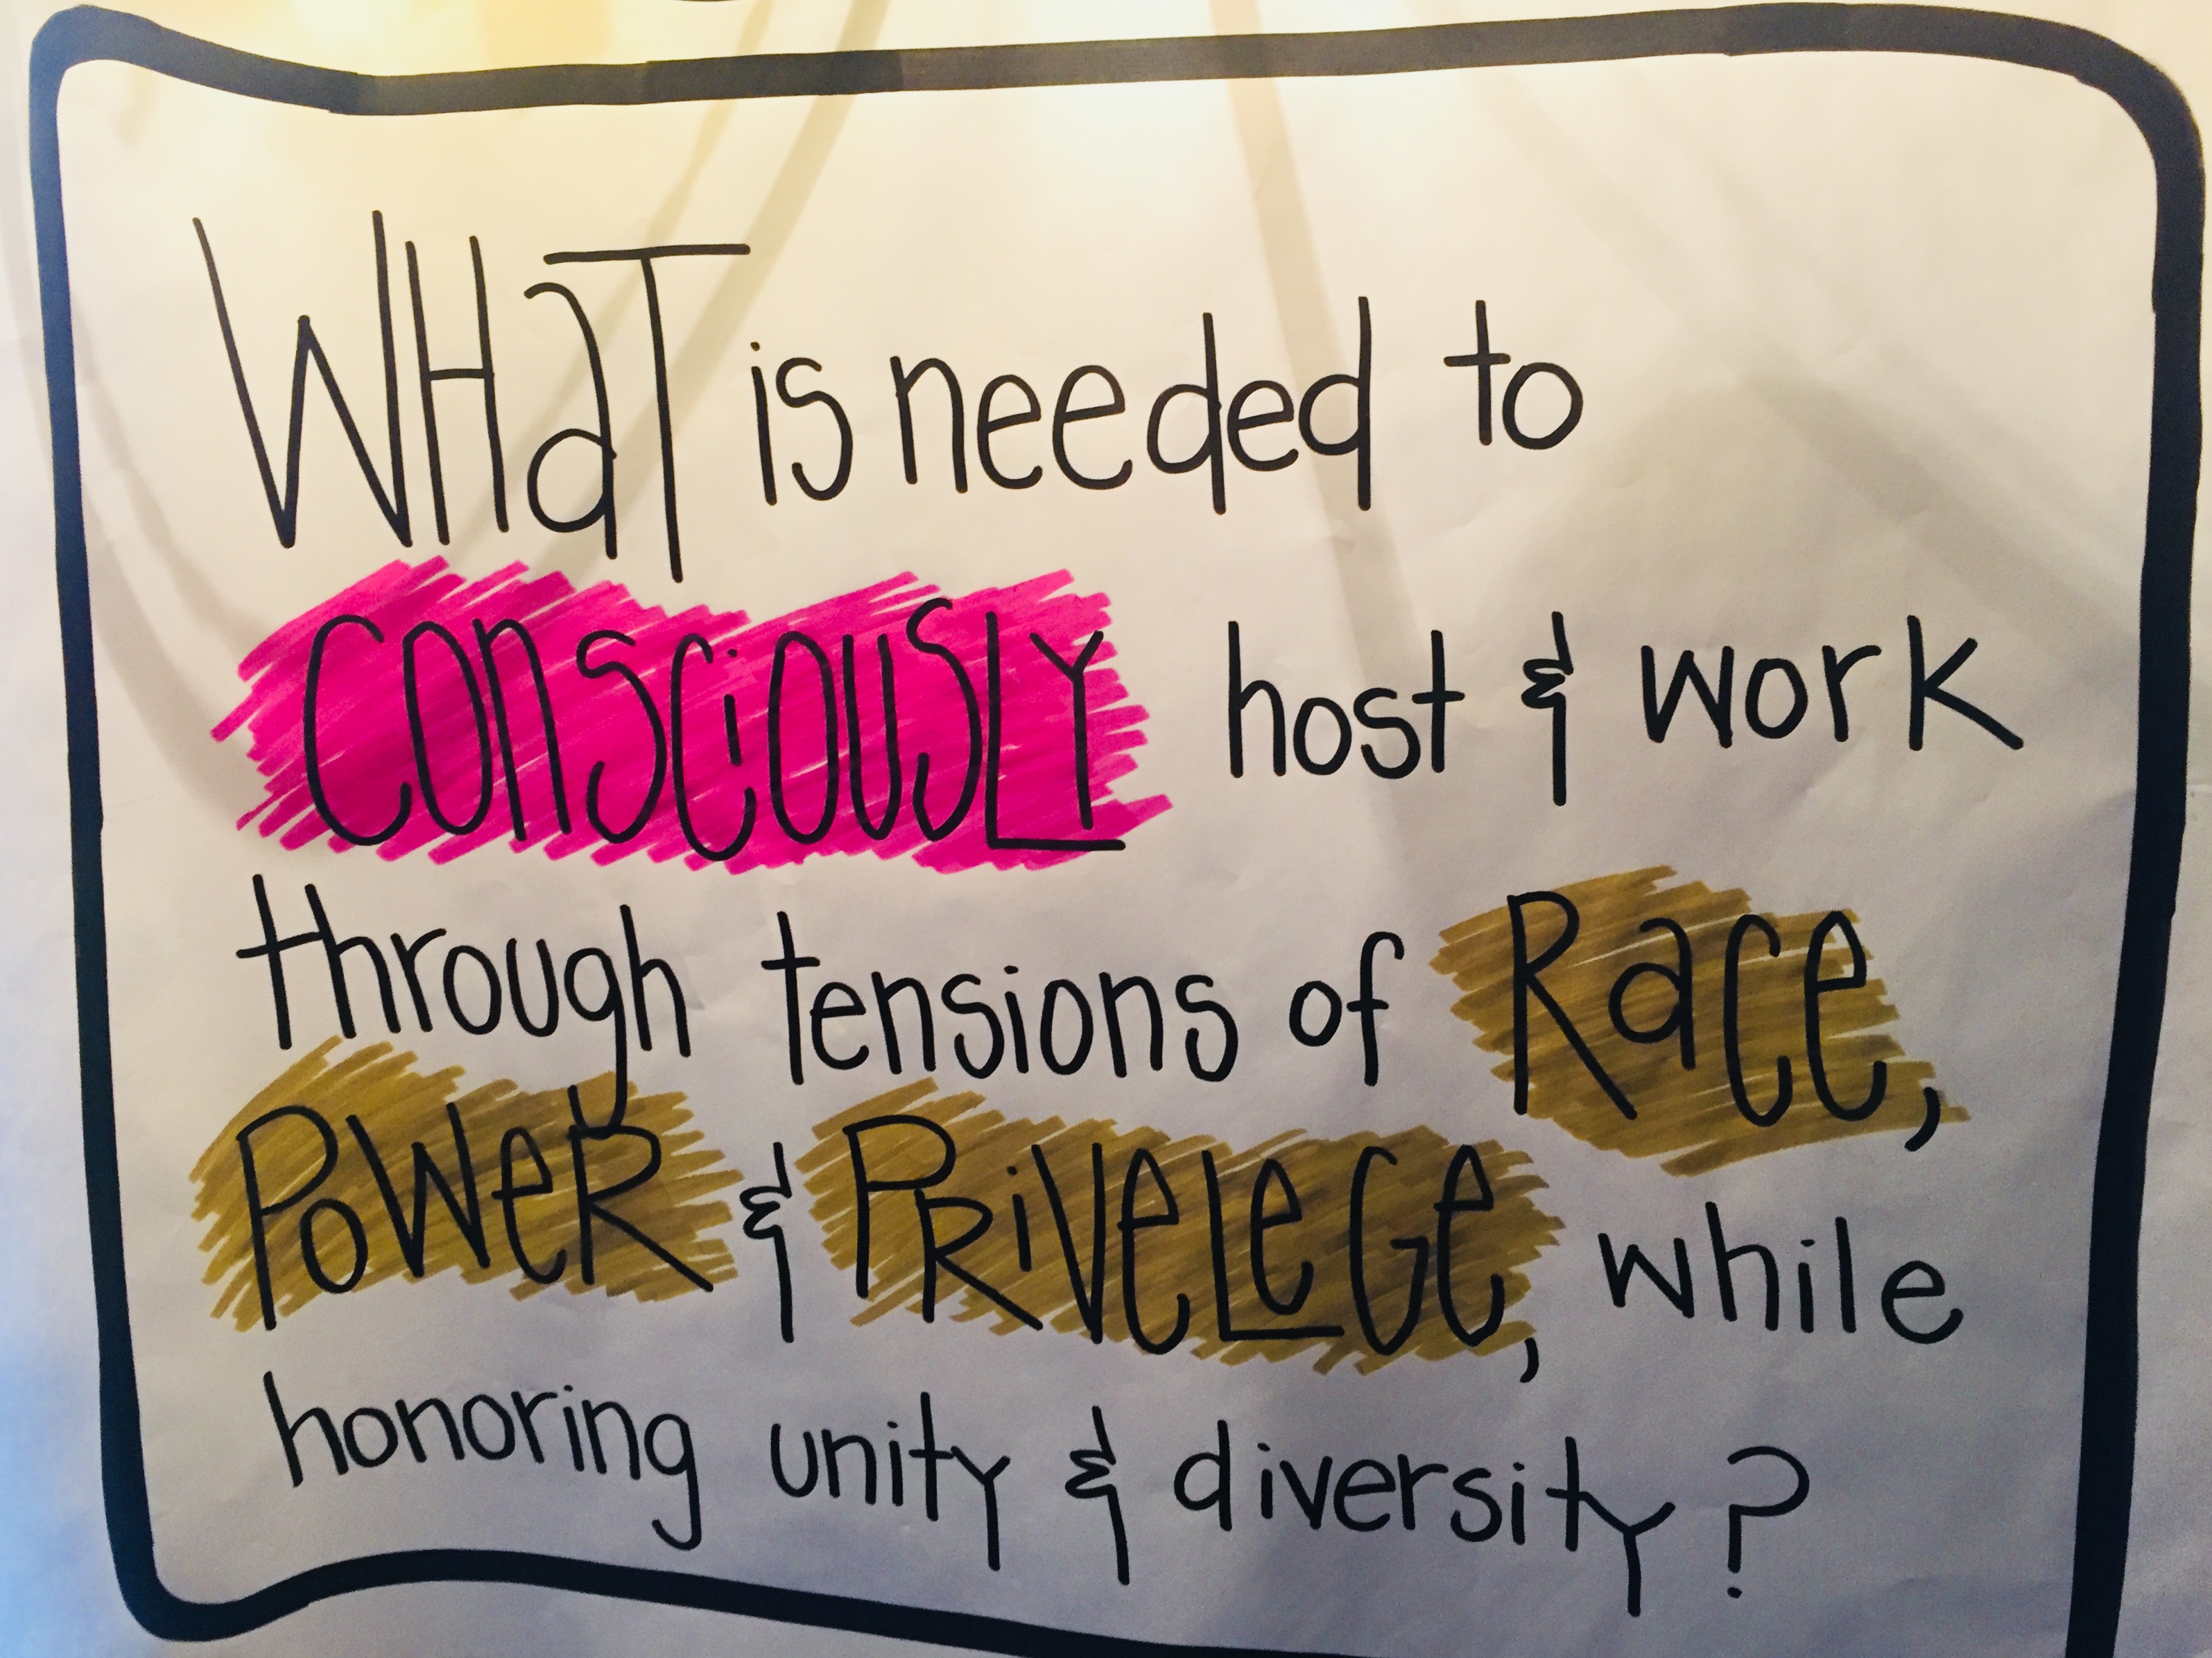 WHaT is needed to
CONSCiOUSLY host & work
through tensions of Race,
POWeR & PRiVeLeGe, while
honoring unity & diversity?